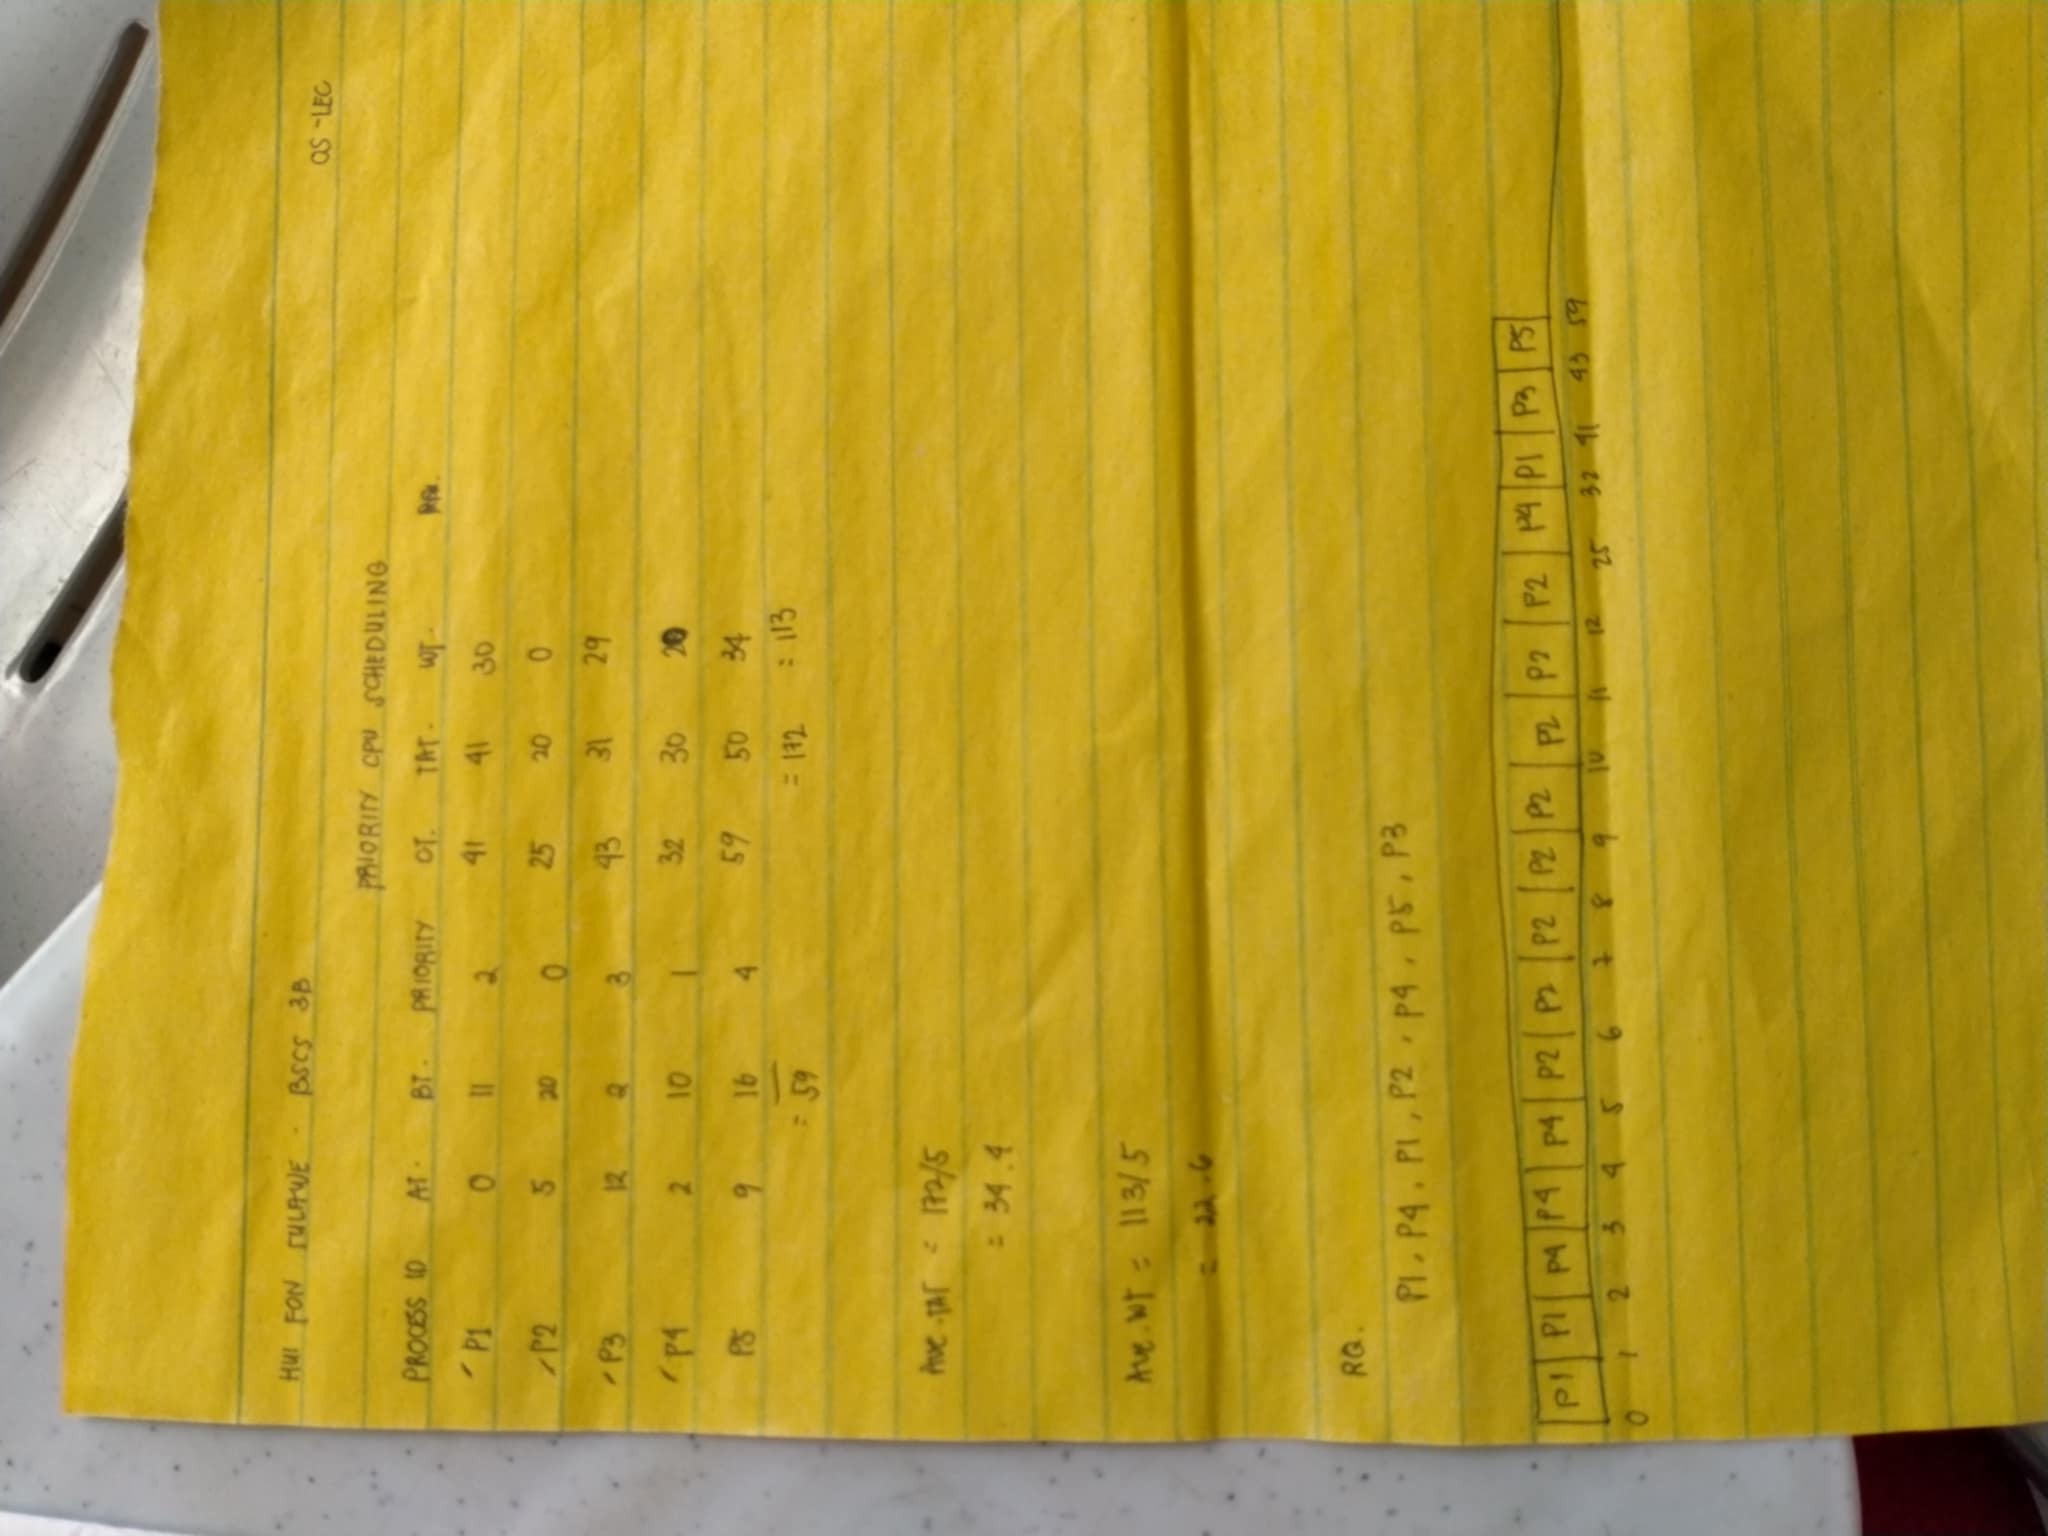 HUI FON SULAWE - BSCS 3B OS-LEC
PRIORITY CPU SCHEDULING
PROCESS ID AT. BT. PRIORITY CT. TAT. WT.
P1 0 11 2 41 41 30
P2 5 20 0 25 20 0
P3 12 2 3 43 31 29
P4 2 10 1 32 30 20
P5 9 16 4 59 50 34
= 59 = 172 = 113
Ave. TAT = 172/5
= 34.4
Ave. WT = 113/5
= 22.6
RQ.
P1, P4, P1, P2, P4, P5, P3
P1 P1 P4 P4 P4 P2 P2 P2 P2 P2 P2 P2 P2 P4 P1 P3 P5
0 1 2 3 4 5 6 7 8 9 10 11 12 25 32 41 43 59